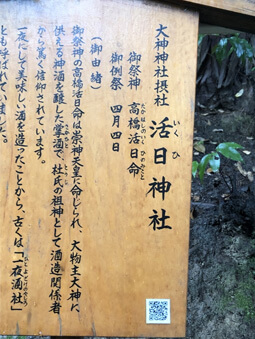 大神神社摂社
いくひ
活日神社
御祭神 高橋活日命
たかはしのいくひのみこと
御例祭 四月四日
(御由緒)
御祭神の高橋活日命は崇神天皇に命じられ、大物主大神に
供える神酒を醸した掌酒で、杜氏の祖神として酒造関係者
から篤く信仰されています。
一夜にして美味しい酒を造ったことから、古くは「一夜酒社」
とも呼ばれていました。